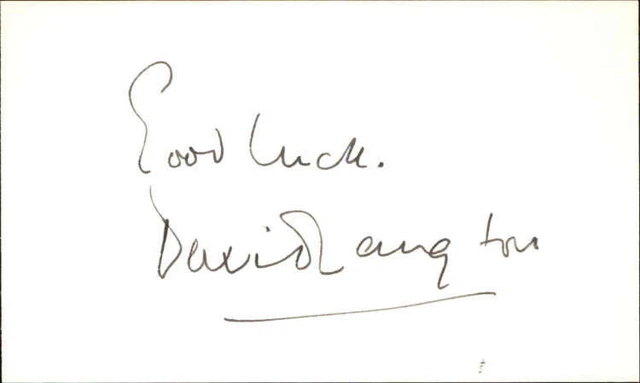 Good Luck.
David Langton